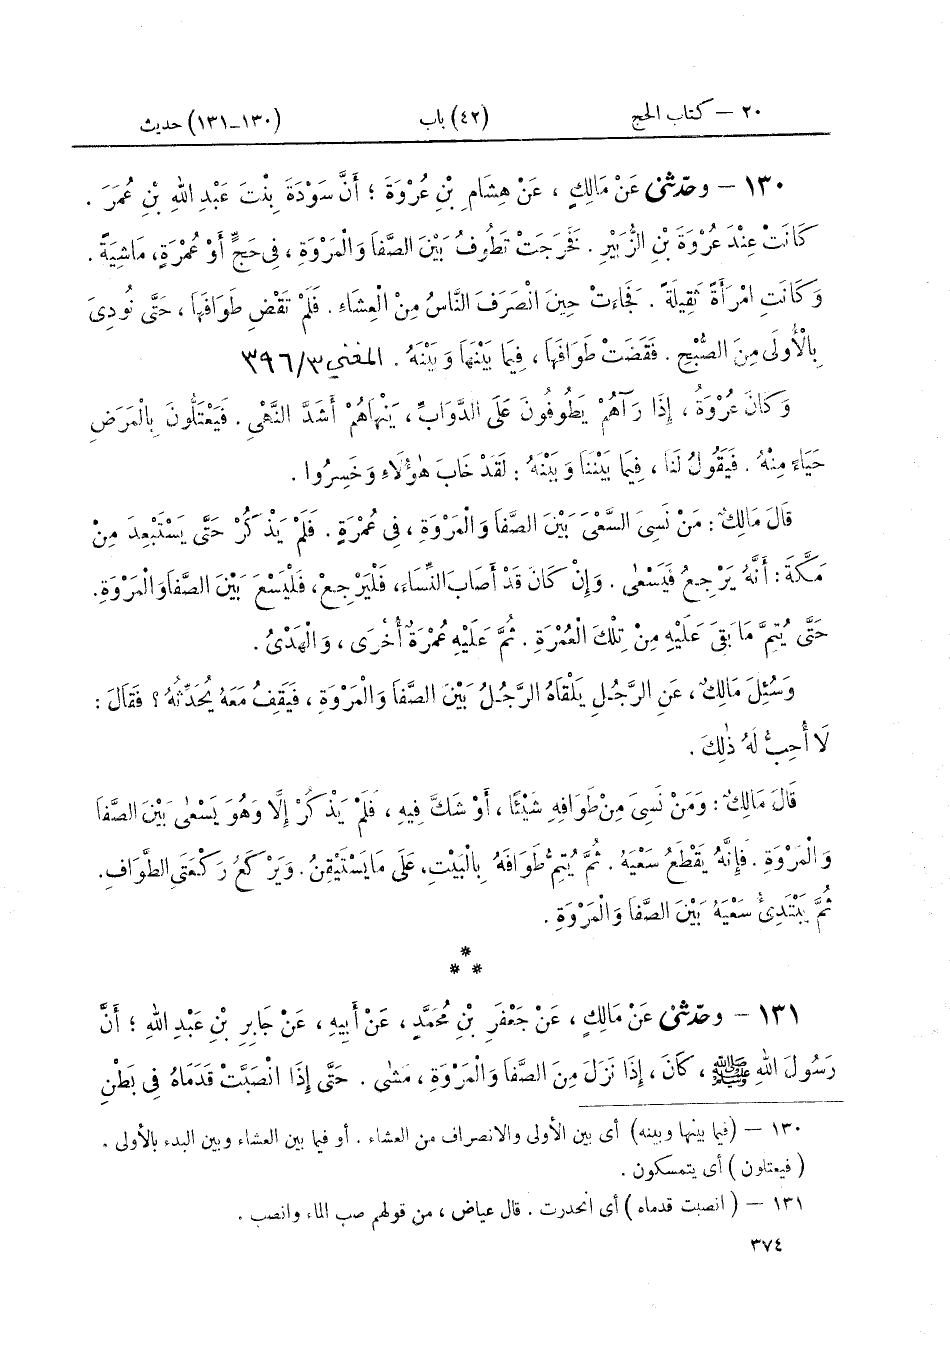 ٢٠ – كتاب الحج (٤٢) باب (١٣٠–١٣١) حديث
١٣٠ – وحدّثنى عَنْ مَالِكٍ ، عَنْ هِشَامِ بْنِ عُرْوَةَ ؛ أَنَّ سَوْدَةَ بِنْتَ عَبْدِ اللهِ بْنِ عُمَرَ .
كَانَتْ عِنْدَ عُرْوَةَ بْنِ الزُّبَيْرِ . فَخَرَجَتْ تَطُوفُ بَيْنَ الصَّفَا وَالْمَرْوَةِ ، فِى حَجٍّ أَوْ عُمْرَةٍ، مَاشِيَةً .
وَكَانَتِ امْرَأَةً ثَقِيلَةً . فَجَاءَتْ حِينَ انْصَرَفَ النَّاسُ مِنَ الْعِشَاءِ . فَلَمْ تَقْضِ طَوَافَهَا ، حَتَّى نُودِىَ
بِالْأُولَى مِنَ الصُّبْحِ . فَقَضَتْ طَوَافَهَا ، فِيمَا بَيْنَهَا وَبَيْنَهُ . المغني ٣/٣٩٦
وَكَانَ عُرْوَةُ ، إِذَا رَآهُمْ يَطُوفُونَ عَلَى الدَّوَابِّ ، يَنْهَاهُمْ أَشَدَّ النَّهْىِ . فَيَعْتَلُّونَ بِالْمَرَضِ
حَيَاءً مِنْهُ . فَيَقُولُ لَنَا ، فِيمَا بَيْنَنَا وَبَيْنَهُ : لَقَدْ خَابَ هٰؤُلَاءِ وَخَسِرُوا .
قَالَ مَالِكٌ : مَنْ نَسِىَ السَّعْىَ بَيْنَ الصَّفَا وَالْمَرْوَةِ ، فِى عُمْرَةٍ . فَلَمْ يَذْكُرْ حَتَّى يَسْتَبْعِدَ مِنْ
مَكَّةَ : أَنَّهُ يَرْجِعُ فَيَسْعٰى . وَإِنْ كَانَ قَدْ أَصَابَ النِّسَاءَ، فَلْيَرْجِعْ، فَلْيَسْعَ بَيْنَ الصَّفَا وَالْمَرْوَةِ.
حَتَّى يُتِمَّ مَا بَقِىَ عَلَيْهِ مِنْ تِلْكَ الْعُمْرَةِ . ثُمَّ عَلَيْهِ عُمْرَةٌ أُخْرَى ، وَالْهَدْىُ .
وَسُئِلَ مَالِكٌ ، عَنِ الرَّجُلِ يَلْقَاهُ الرَّجُلُ بَيْنَ الصَّفَا وَالْمَرْوَةِ ، فَيَقِفُ مَعَهُ يُحَدِّثُهُ ؟ فَقَالَ :
لَا أُحِبُّ لَهُ ذٰلِكَ .
قَالَ مَالِكٌ : وَمَنْ نَسِىَ مِنْ طَوَافِهِ شَيْئًا ، أَوْ شَكَّ فِيهِ ، فَلَمْ يَذْكُرْ إِلَّا وَهُوَ يَسْعٰى بَيْنَ الصَّفَا
وَالْمَرْوَةِ . فَإِنَّهُ يَقْطَعُ سَعْيَهُ . ثُمَّ يُتِمُّ طَوَافَهُ بِالْبَيْتِ، عَلَى مَا يَسْتَيْقِنُ . وَيَرْكَعُ رَكْعَتَىِ الطَّوَافِ.
ثُمَّ يَبْتَدِئُ سَعْيَهُ بَيْنَ الصَّفَا وَالْمَرْوَةِ .
*
* *
١٣١ – وحدّثنى عَنْ مَالِكٍ ، عَنْ جَعْفَرِ بْنِ مُحَمَّدٍ ، عَنْ أَبِيهِ ، عَنْ جَابِرِ بْنِ عَبْدِ اللهِ ؛ أَنَّ
رَسُولَ اللهِ ﷺ ، كَانَ ، إِذَا نَزَلَ مِنَ الصَّفَا وَالْمَرْوَةِ ، مَشٰى . حَتَّى إِذَا انْصَبَّتْ قَدَمَاهُ فِى بَطْنِ
١٣٠ – (فيما بينها وبينه) أى بين الأولى والانصراف من العشاء . أو فيما بين العشاء وبين البدء بالأولى .
( فيعتلون ) أى يتمسكون .
١٣١ – ( انصبت قدماه ) أى انحدرت . قال عياض ، من قولهم صب الماء وانصب .
٣٧٤